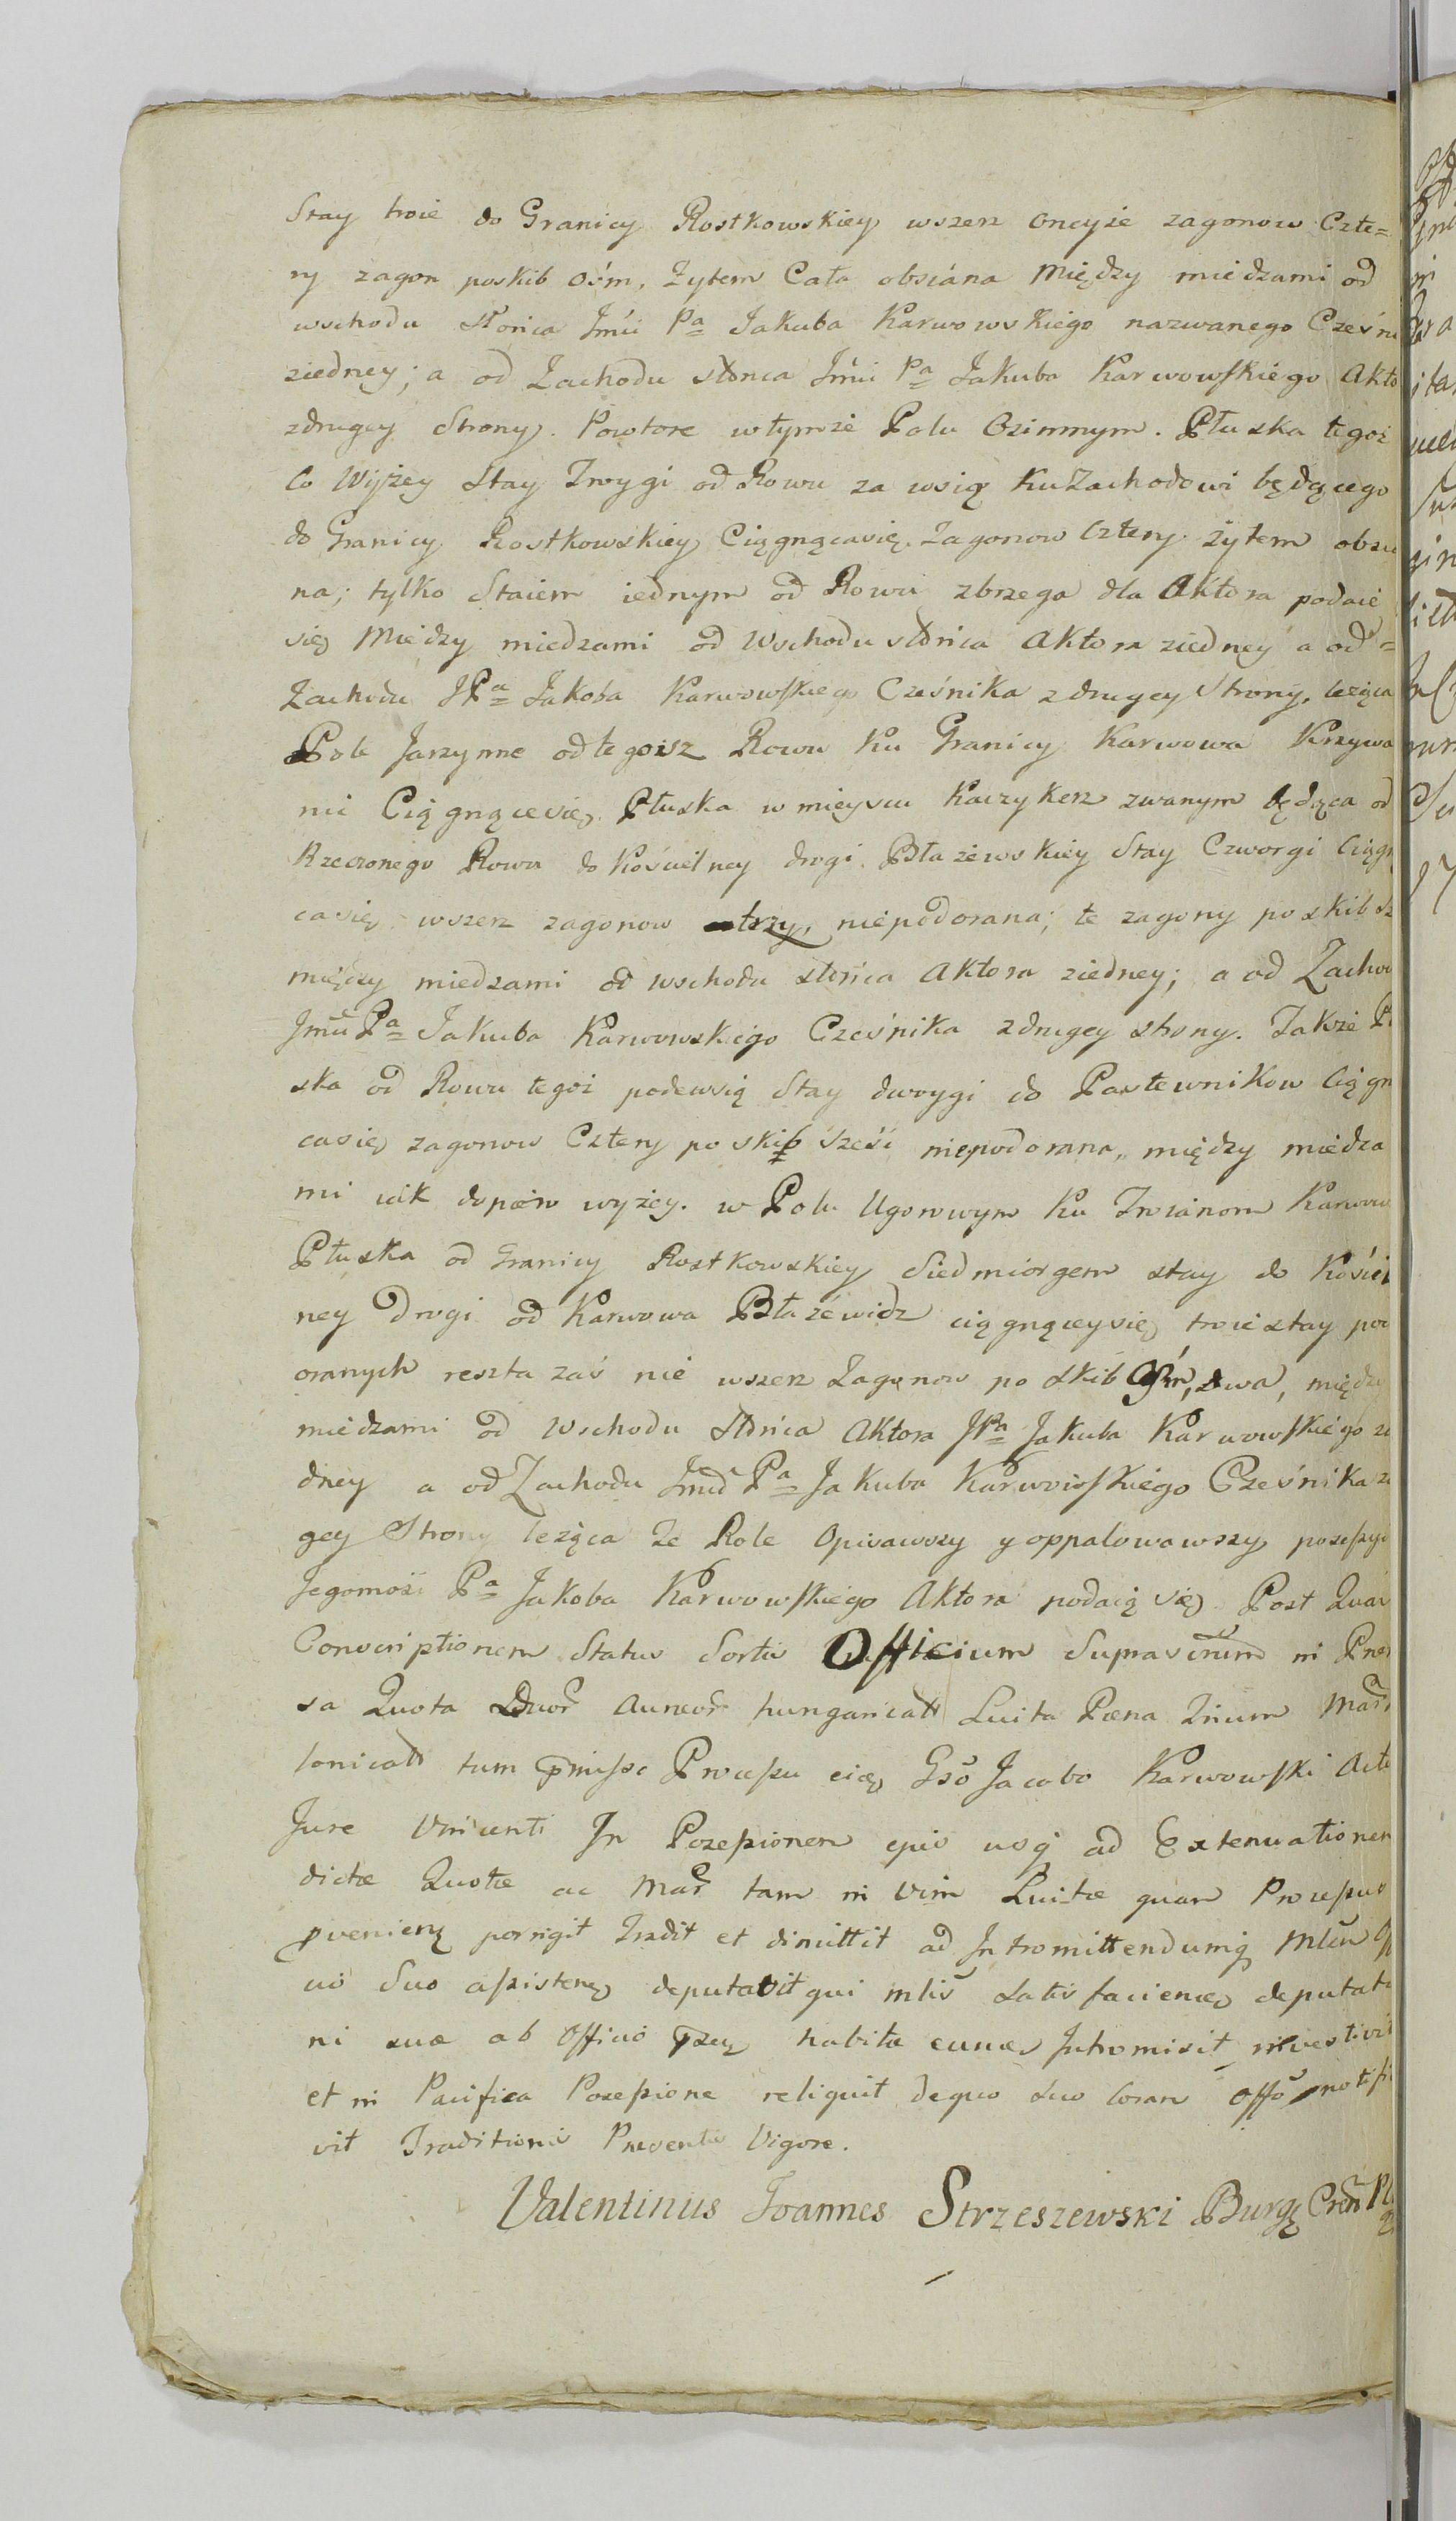 Stay troie do Granicy Rostkowskiey wszerz oneyże zagonow Czte=
ry zagon poskib ośm, żytem Cała obsiána Między miedzami od
wschodu słońca Jmći Pa Jakuba Karwowskiego nazwanego Cześni
ziedney; a od Zachodu słonca Jmći Pa Jakuba Karwowskiego Akto
zdrugey Strony. Powtore wtymże Polu Ozimnym. Płuska tegoż
Co Wyżey Stay Troygi od Rowu za wsią Ku Zachodowi będącego
do Granicy Rostkowskiey Ciągnącasię. Zagonow Cztery żytem obsia
na; tylko Staiem iednym od Rowu zbrzega dla Aktora podaie
się Miedzy miedzami od Wschodu słońca Aktora ziedney a od=
Zachodu JPa Jakoba Karwowskiego Cześnika zdrugey Strony, leżąca
Pole Jarzynne odtegoisz Rowu Ku Granicy Karwowa Krzywa
nic Ciągnącesię, Płuska w mieyscu Kaczy Kerz zwanym będąca od
Rzeczonego Rowu do Kościelney drogi Błażewskiey Stay Czworgi Ciągn
casię wszerz zagonow trzy, niepodorana; te zagony po skib sz
między miedzami od wschodu słońca Aktora ziedney; a od Zachod
Jmći Pa Jakuba Karwowskiego Cześnika zdrugey strony. Także Pł
ska od Rowu tegoż podewsią Stay dwoygi do Pastewnikow Ciągn
casię zagonow Cztery po skib sześć niepodorana, między miedza
mi iák dopiero wyżey. w Polu Ugorowym Ku Troianom Karwow
Płuska od Granicy Rostkowskiey Siedmiorgem stay do Kościel
ney Drogi od Karwowa Błażewicz ciągnącey się, troie stay pod
oranych reszta zaś nie wszerz Zagonow po skib Ośm, dwa, między
miedzami od Wschodu Słońca Aktora JPa Jakuba Karwowskiego zie
dney a od Zachodu Jmći Pa Jakuba Karwowskiego Cześnika zd
gey Strony leżąca Te Role Opisawszy y oppalowawszy possessyi
Jegomośći Pa Jakoba Karwowskiego Aktora podaią się. Post Quar
Conscriptionem Status Sortis Officium Suprascrum in Pnes
sa Quota Duor Aureor hungarical Luita Pœna Trium Mar
lonical tum pmisso Processu eidę Gso Jacobo Karwowski Acto
Jure Vincenti In Possessionem ejus usq ad Extenuationem
dictæ Quotæ ac Mar tam in Vim Luitæ quam Processus
pvenienę porrigit Tradit et dimittit ad Intromittendumq Mlem
uo Suo assistenę deputavit qui mlis Satisfacienę deputat
ni suæ ab Officio habitæ eundę Intromisit, investivit
et in Pacifica Possessione reliquit de quo suo coram Offo notifi
vit Traditionis Presentis Vigore.
Valentinus Joannes Strzeszewski Burg